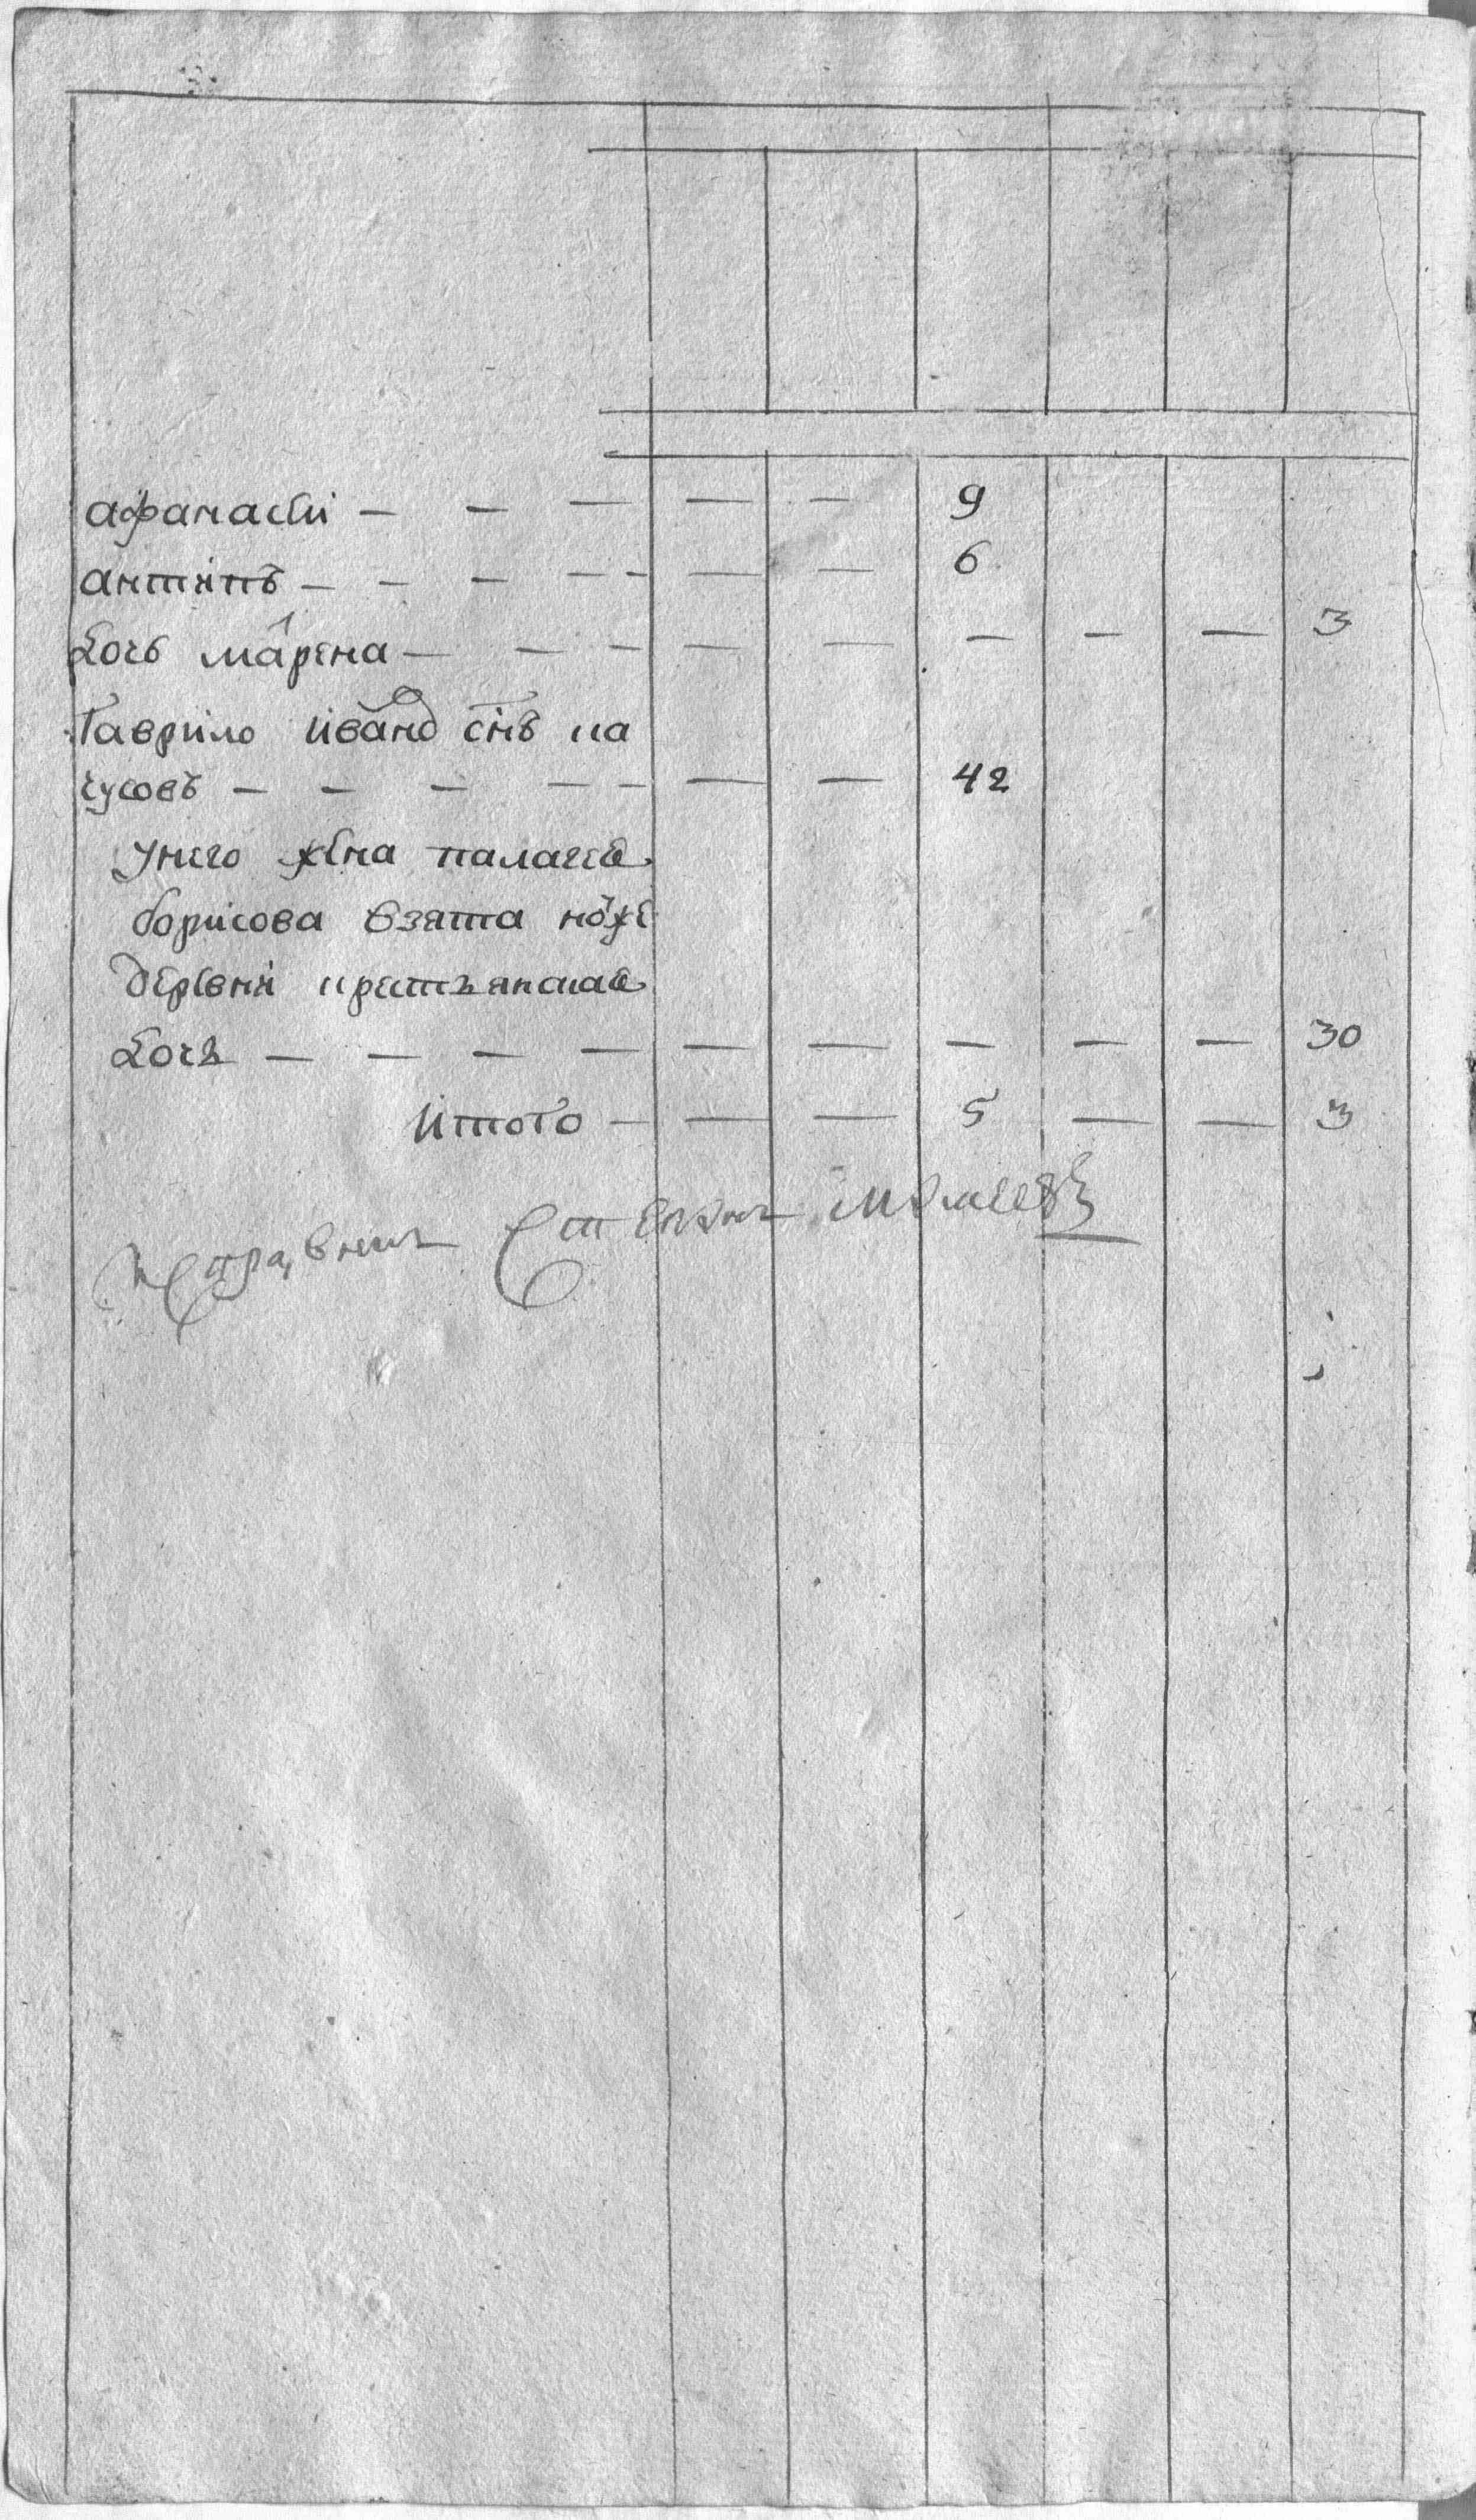 афанасеи — — — — — 9
антипъ — — — — — — 6
дочь марена — — — — — — — — 3
Гаврило ивановъ снъ па
чусовъ — — — — — — — 42
унего жена палагея
борисова взята тоже
деревни крестьянская
дочь — — — — — — — — — 30
итого — — — 5 — — 3
Степанъ